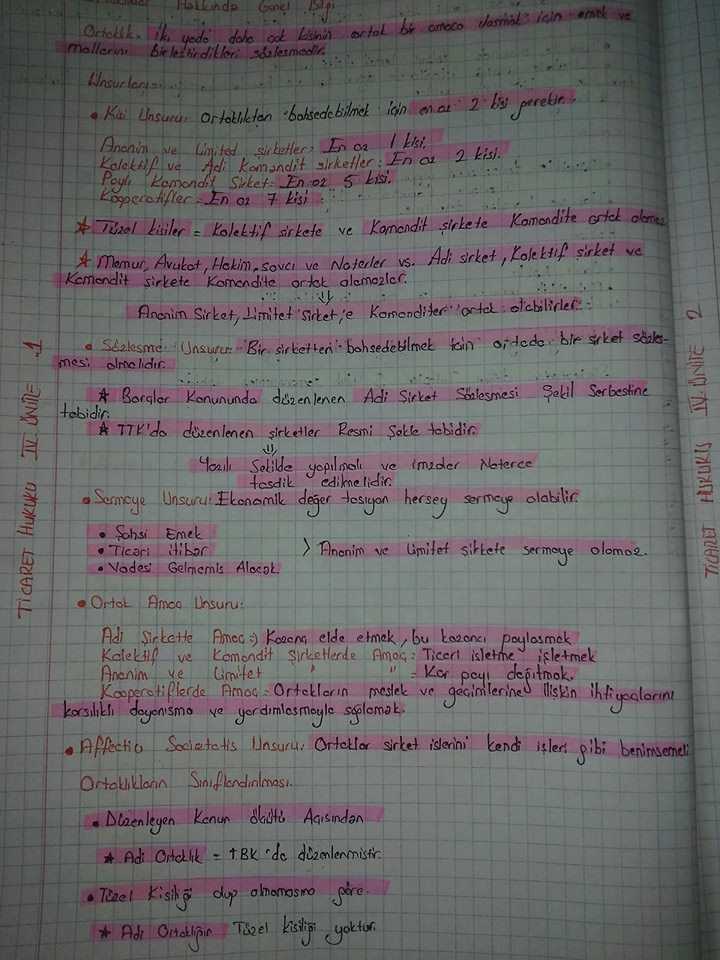 Hakkında Genel Bilgi
Ortaklık. İki yada daha çok kişinin ortak bir amaca ulaşmak için emek ve
mallarını birleştirdikleri sözleşmedir.
Unsurları:
• Kişi Unsuru: Ortaklıktan bahsedebilmek için en az 2 kişi gerekir.
Anonim ve Limited şirketler: En az 1 kişi.
Kolektif ve Adi Komandit şirketler: En az 2 kişi.
Paylı Komandit Şirket: En az 5 kişi.
Kooperatifler = En az 7 kişi
* Tüzel kişiler = Kolektif şirkete ve Komandit şirkete Komandite ortak olamaz
* Memur, Avukat, Hakim, savcı ve Noterler vs. Adi şirket, Kolektif şirket ve
Komandit şirkete Komandite ortak olamazlar.
⇓
Anonim Şirket, Limitet Şirket'e Komanditer ortak olabilirler.
• Sözleşme Unsuru: Bir şirketten bahsedebilmek için ortada bir şirket sözleş-
mesi olmalıdır.
* Borçlar Kanununda düzenlenen Adi Şirket Sözleşmesi Şekil Serbestine
tabidir.
* TTK'da düzenlenen şirketler Resmi Şekle tabidir.
⇓
Yazılı Şekilde yapılmalı ve imzalar Noterce
tasdik edilmelidir.
• Sermaye Unsuru: Ekonomik değer taşıyan herşey sermaye olabilir.
• Şahsi Emek
• Ticari itibar > Anonim ve Limitet şirkete sermaye olamaz.
• Vadesi Gelmemiş Alacak
• Ortak Amaç Unsuru:
Adi Şirkette Amaç:) Kazanç elde etmek, bu kazancı paylaşmak
Kolektif ve Komandit Şirketlerde Amaç: Ticari işletme işletmek
Anonim ve Limitet " " = Kar payı dağıtmak.
Kooperatiflerde Amaç = Ortakların meslek ve geçimlerine ilişkin ihtiyaçlarını
karşılıklı dayanışma ve yardımlaşmayla sağlamak.
• Affectio Societatis Unsuru: Ortaklar şirket işlerini kendi işleri gibi benimsemeli
Ortaklıkların Sınıflandırılması.
• Düzenleyen Kanun ölçütü Açısından
* Adi Ortaklık = TBK'da düzenlenmiştir.
• Tüzel Kişiliği olup olmamasına göre.
* Adi Ortaklığın Tüzel kişiliği yoktur.
TİCARET HUKUKU IV. ÜNİTE 1
TİCARET HUKUKU IV. ÜNİTE 2